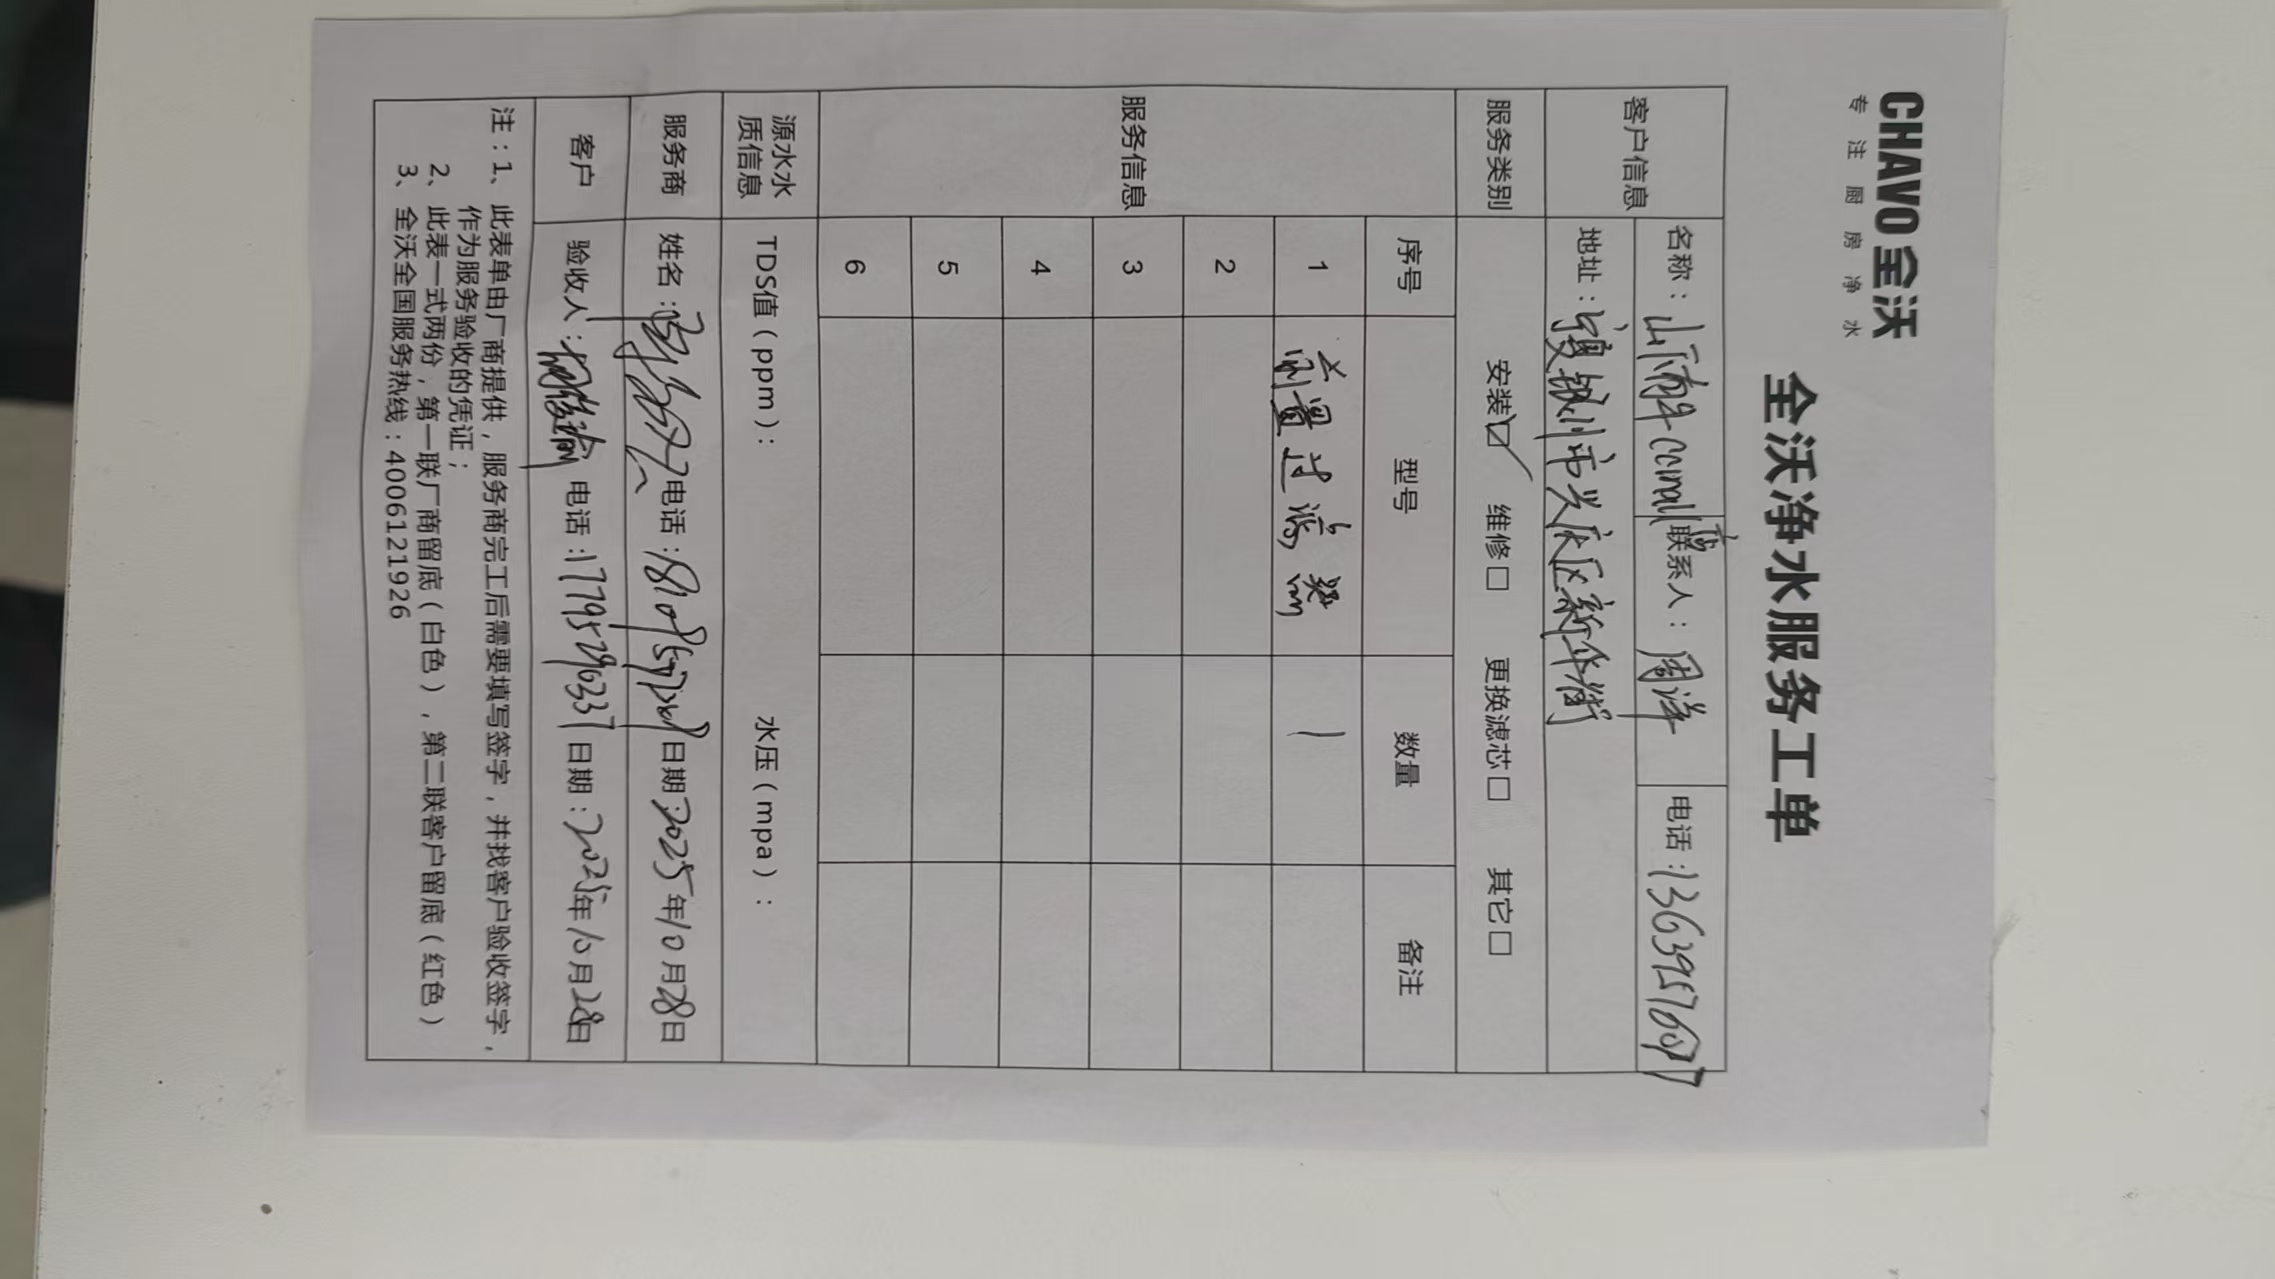 CHAVO 全沃
专注厨房净水
全沃净水服务工单
客户信息
名称：山雨牛ccmall店
联系人：周洋
电话：1363957607
地址：宁夏银川市兴庆区新华街
服务类别
安装☑ 维修□ 更换滤芯□ 其它□
服务信息
序号 型号 数量 备注
1 前置过滤器 1
2
3
4
5
6
源水水质信息
TDS值（ppm）： 水压（mpa）：
服务商
姓名： 电话： 日期：2025年10月28日
客户
验收人： 电话：17795290337 日期：2025年10月28日
注：1、此表单由厂商提供，服务商完工后需要填写签字，并找客户验收签字，
作为服务验收的凭证；
2、此表一式两份，第一联厂商留底（白色），第二联客户留底（红色）
3、全沃全国服务热线：4006121926